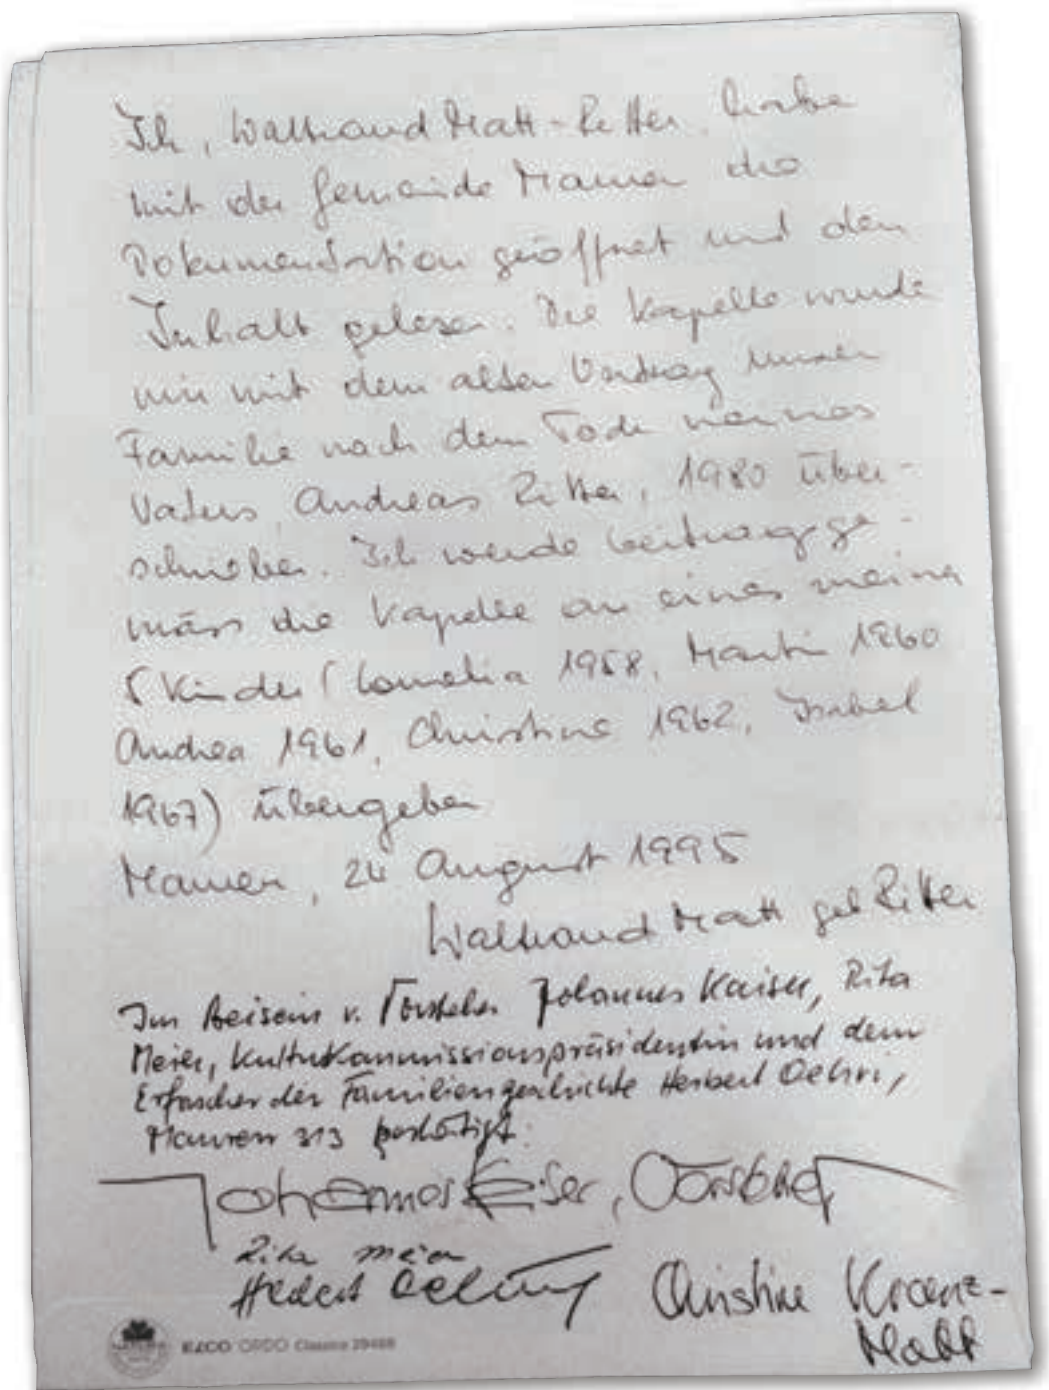 Ich, Waltraud Matt-Ritter, habe
mit der Gemeinde Mauren die
Dokumentation geöffnet und den
Inhalt gelesen. Die Kapelle wurde
mir mit dem alten Vertrag unserer
Familie nach dem Tode meines
Vaters, Andreas Ritter, 1980 über-
schrieben. Ich werde
mäss die Kapelle an eines meiner
5 Kinder (Cornelia 1958, Martin 1960
Andrea 1961, Christine 1962, Isabel
1967) übergeben
Mauren, 24 August 1995
Waltraud Matt geb Ritter
Im Beisein v. Vorsteher Johannes Kaiser, Rita
Meier, Kulturkommissionspräsidentin und dem
Erfascher der Familiengeschichte Herbert Oehri,
Mauren 313 bestätigt:
Johannes Kaiser, Vorsteher
Rita Meier
Herbert Oehri
Christine Kranz-
Matt
ELCO ORDO Classico 29468